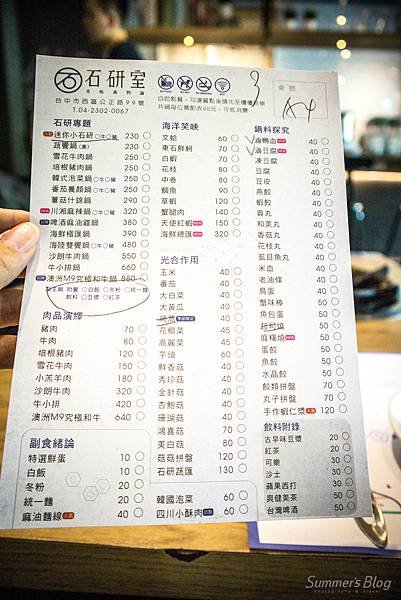 石研室
台中市西區公正路99號
T.04-2302-0067
3
桌號
A4
石研專題
迷你小石研 230
蔬饗鍋(素) 230
雪花牛肉鍋 350
培根豬肉鍋 350
韓式泡菜鍋 320
番茄養顏鍋 320
蕈菇什錦鍋 290
川湘麻辣鍋 320
啤酒麻油雞鍋 380
海鮮極匯鍋 390
海陸雙饗鍋 480
沙朗牛肉鍋 550
牛小排鍋 660
澳洲M9究極和牛鍋 880
肉品演繹
豬肉 70
牛肉 80
培根豬肉 120
雪花牛肉 150
小羔羊肉 180
沙朗牛肉 320
牛小排 420
澳洲M9究極和牛 640
副食緒論
特選鮮蛋 10
白飯 10
冬粉 20
統一麵 20
麻油麵線 40
海洋笑映
文蛤 60
東石鮮蚵 70
白蝦 70
花枝 80
中卷 80
鯛魚 90
草蝦 120
蟹腿肉 140
天使紅蝦 190
海鮮總匯 320
光合作用
玉米 40
番茄 40
大白菜 40
大黃瓜 40
花椰菜 45
高麗菜 45
芋頭 60
鮮香菇 60
秀珍菇 60
金針菇 60
杏鮑菇 60
珊瑚菇 60
鴻喜菇 70
美白菇 80
菇菇拼盤 120
石研蔬匯 130
韓國泡菜 60
四川小酥肉 60
鍋料探究
鴨血 40
豆腐 40
凍豆腐 40
豆腐 40
豆皮 40
燕餃 40
蝦餃 40
貢丸 40
和美丸 40
香菇丸 40
花枝丸 40
虱目魚丸 40
米血 40
老油條 40
鳥蛋 40
蟹味棒 50
魚包蛋 50
麻糬燒 50
蛋餃 50
魚餃 50
水晶餃 50
餃類拼盤 70
丸子拼盤 70
手作蝦仁漿 120
飲料附錄
古早味豆漿 20
紅茶 20
可樂 30
沙士 30
蘋果西打 30
爽健美茶 50
台灣啤酒 50
Summer's Blog